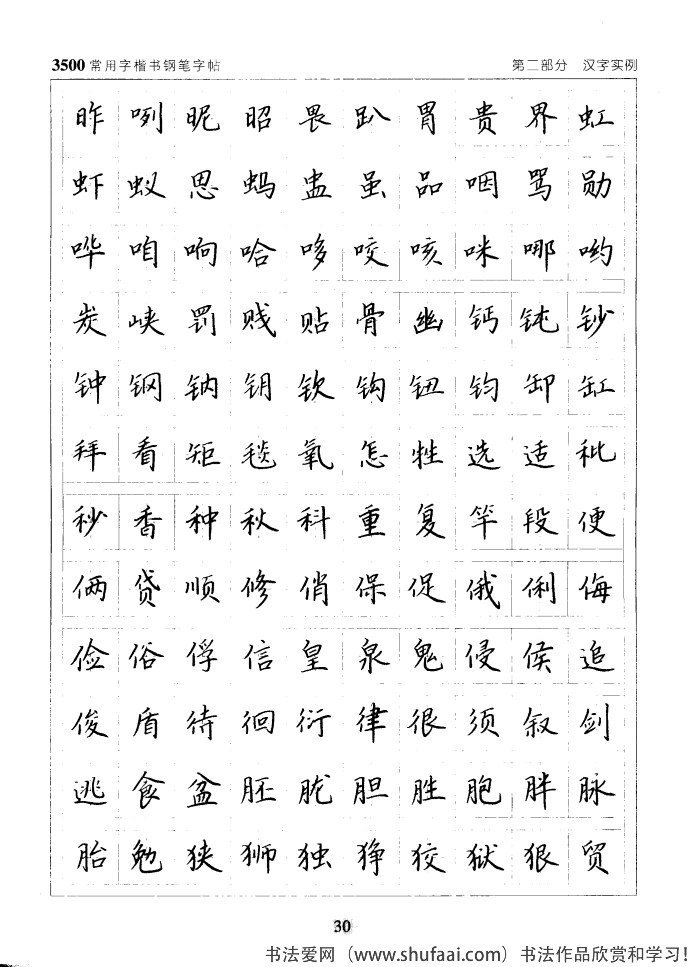 3500常用字楷书钢笔字帖 第二部分 汉字实例
昨 咧 昵 昭 畏 趴 胃 贵 界 虹
虾 蚁 思 蚂 盅 虽 品 咽 骂 勋
哗 咱 响 哈 哆 咬 咳 咪 哪 哟
炭 峡 罚 贱 贴 骨 幽 钙 钝 钞
钟 钢 钠 钥 钦 钩 钮 钧 卸 缸
拜 看 矩 毡 氧 怎 牲 选 适 秕
秒 香 种 秋 科 重 复 竿 段 便
俩 贷 顺 修 俏 保 促 俄 俐 侮
俭 俗 俘 信 皇 泉 鬼 侵 侯 追
俊 盾 待 徊 衍 律 很 须 叙 剑
逃 食 盆 胚 胧 胆 胜 胞 胖 脉
胎 勉 狭 狮 独 狰 狡 狱 狠 贸
30
书法爱网（www.shufaai.com）书法作品欣赏和学习！